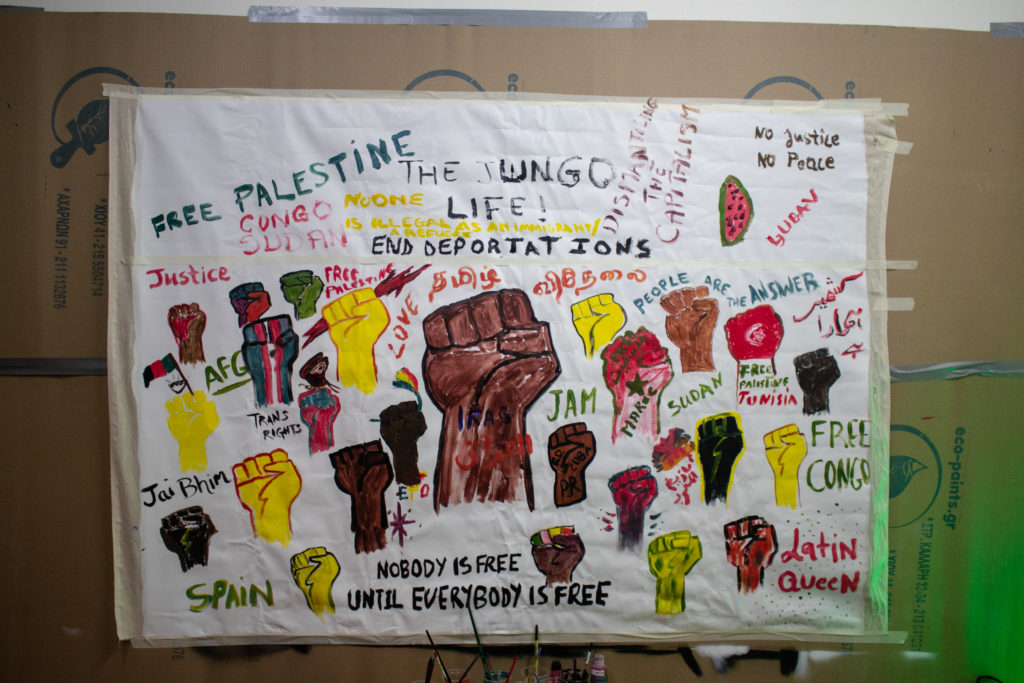 FREE PALESTINE
CONGO
SUDAN
THE JUNGO
LIFE!
NO ONE
IS ILLEGAL AS AN IMMIGRANT/
A REFUGEE
END DEPORTATIONS
DISMANTLING
THE
CAPITALISM
No Justice
No Peace
SUDAN
Justice
FREE
PALESTINE
LOVE
தமிழ்
PEOPLE ARE THE ANSWER
كشمير
AFG
TRANS
RIGHTS
JAM
MAROC
SUDAN
FREE
PALESTINE
TUNISIA
FREE
CONGO
Jai Bhim
CUBA
PR
SPAIN
NOBODY IS FREE
UNTIL EVERYBODY IS FREE
LATIN
QUEEN
eco-paints.gr